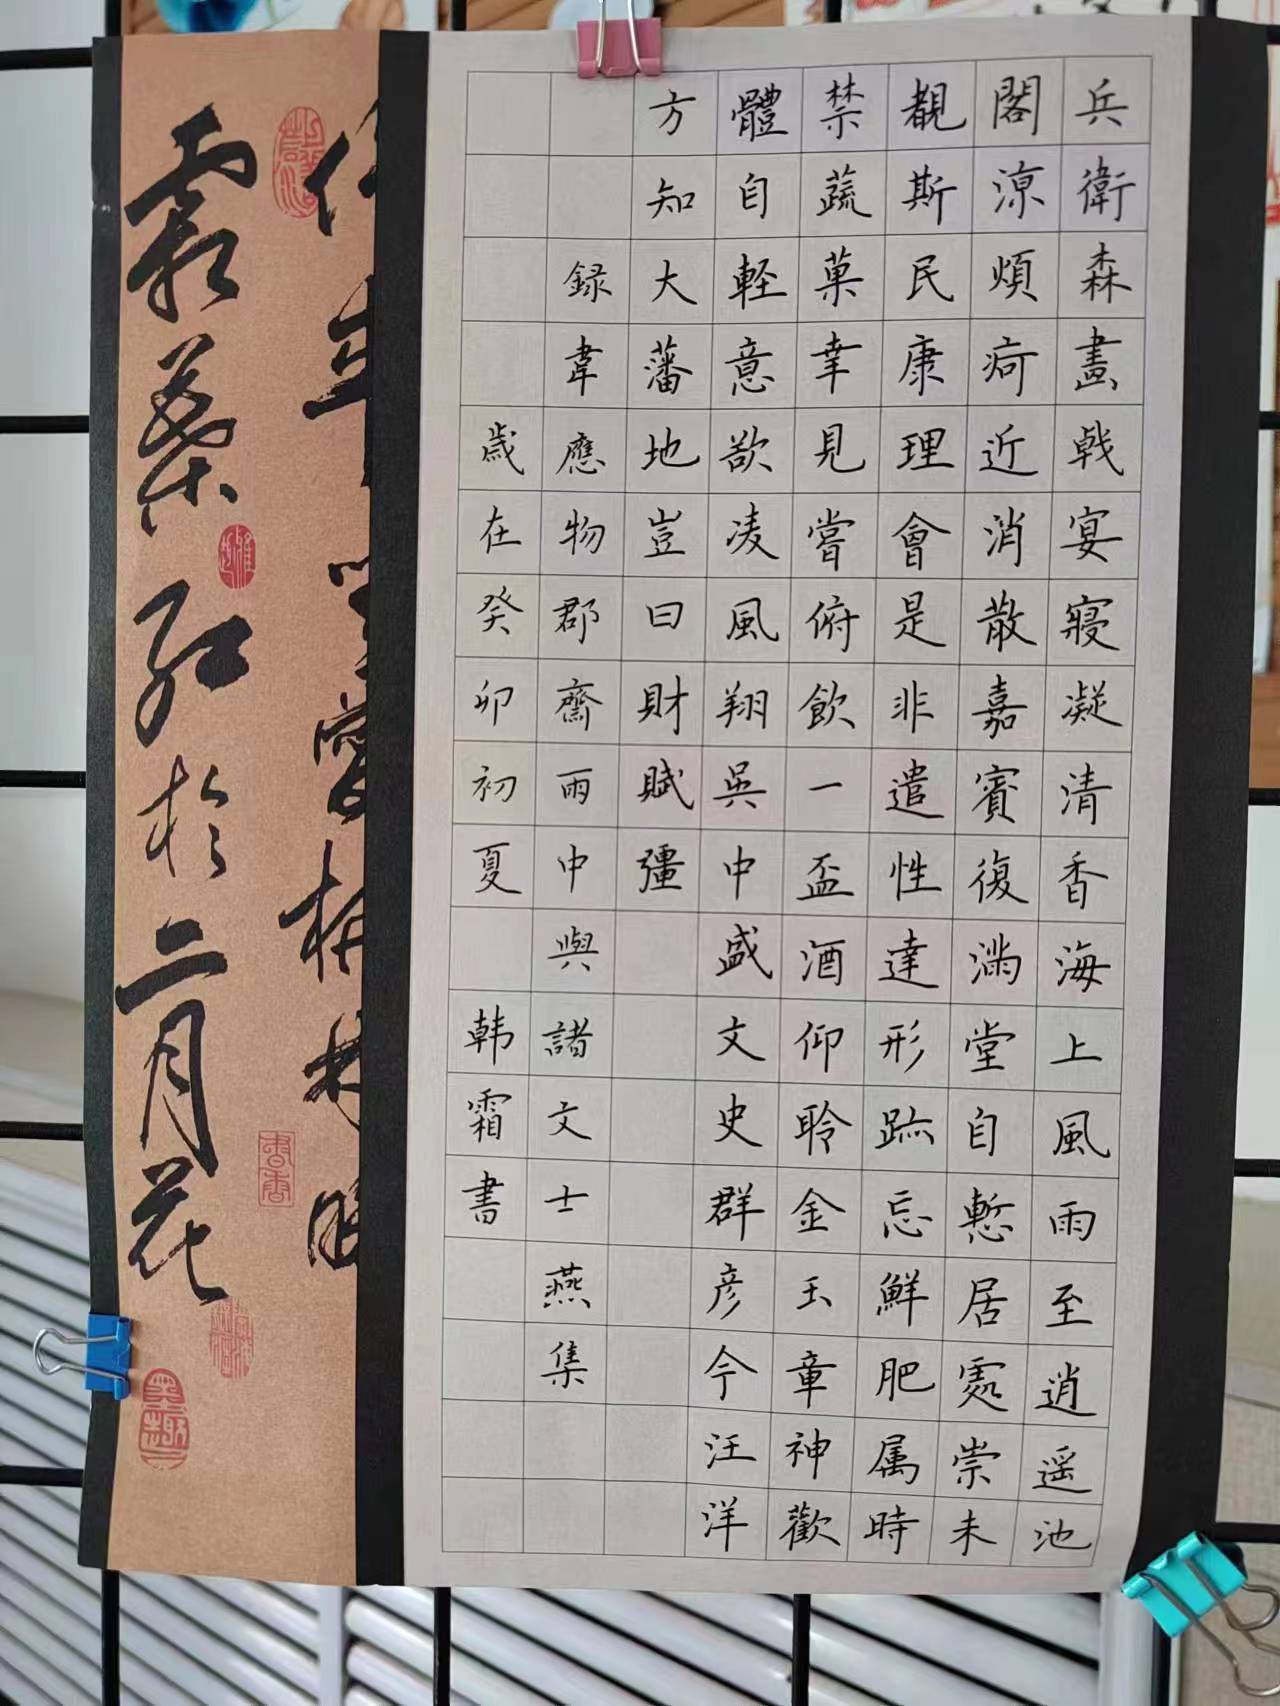 兵衛森畫戟宴寢凝清香海上風雨至逍遥池
閣涼煩疴近消散嘉賓復滿堂自慙居處崇未
覩斯民康理會是非遣性達形跡忘鮮肥属時
禁蔬菓幸見嘗俯飲一盃酒仰聆金玉章神歡
體自輕意欲凌風翔吳中盛文史群彦今汪洋
方知大藩地豈曰財賦彊
録韋應物郡齋雨中與諸文士燕集
歲在癸卯初夏 韩霜書
霜葉紅於二月花